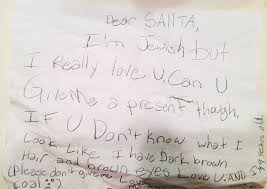 Dear SANTA,
I'm Jewish but
I Really love U. Can U
Give me a present though,
IF U Don't know what I
Look Like I have Dark brown
Hair and brown eyes Love U. AND
(Please don't give me
coal
9 years old.